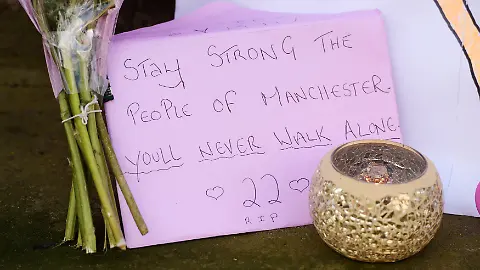 STAY STRONG THE
PEOPLE OF MANCHESTER.
YOULL NEVER WALK ALONE.
♡ 22 ♡
RIP